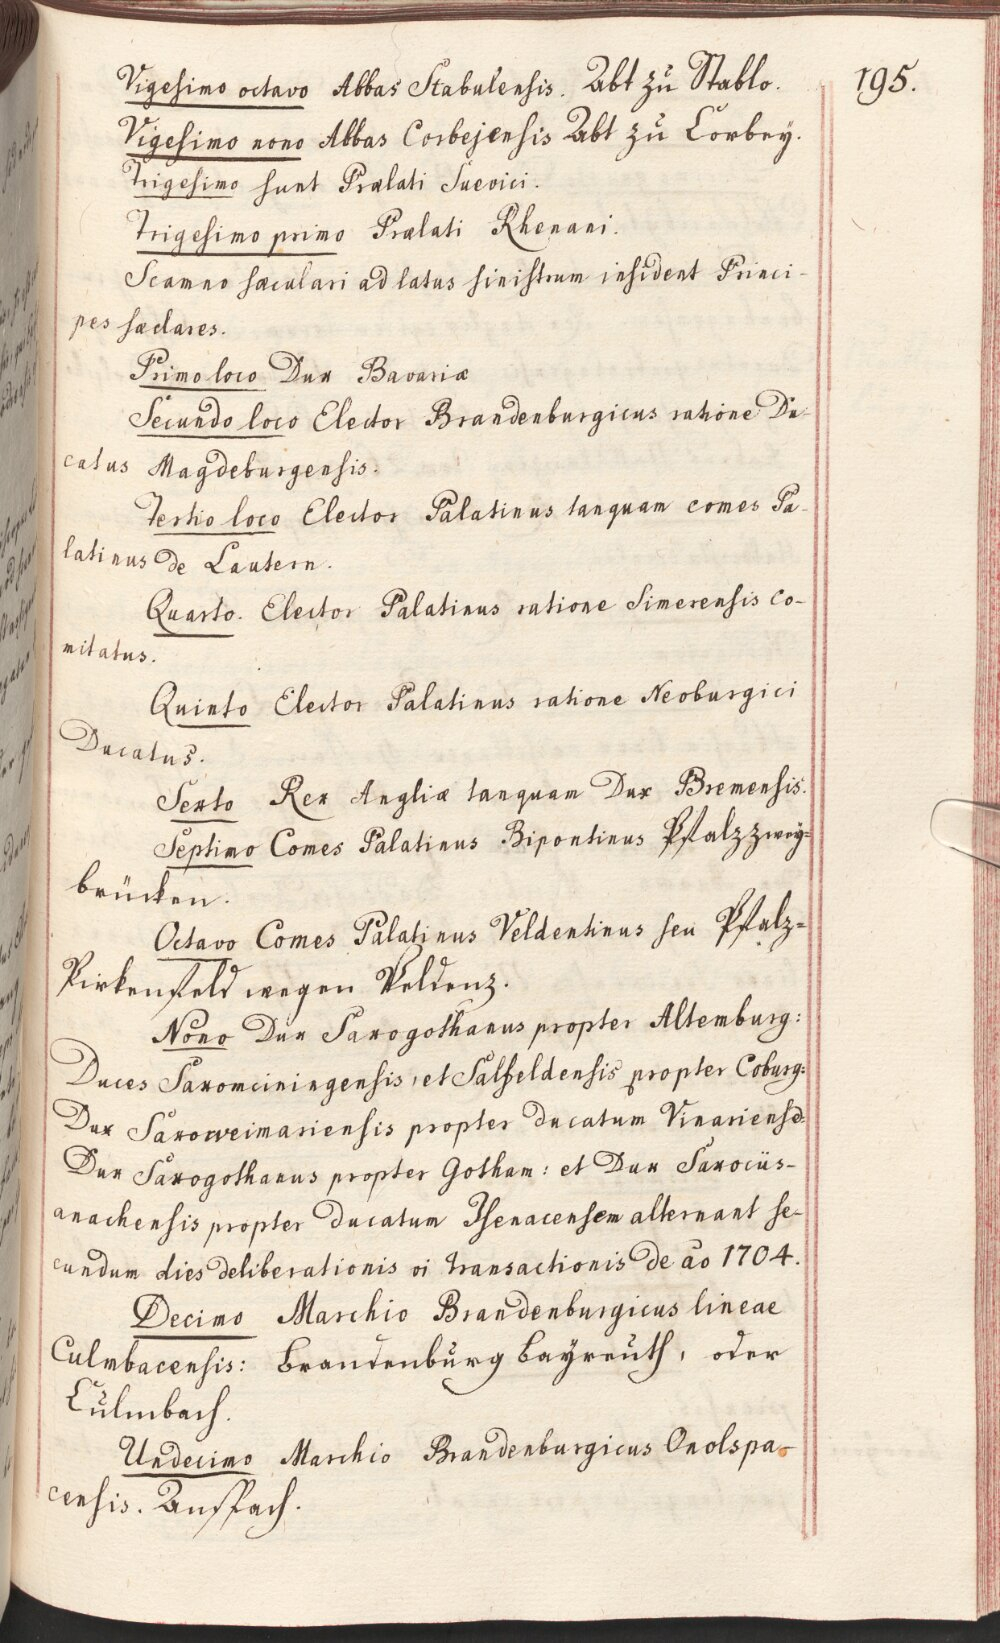 195.
Vigesimo octavo Abbas Stabulensis. Abt zu Stablo.
Vigesimo nono Abbas Corbejensis Abt zu Corbey.
Trigesimo sunt Prælati Suevici.
Trigesimo primo Prælati Rhenani.
Scamno sæculari ad latus sinistrum insident Princi-
pes sæclares.
Primo loco Dux Bavariæ
Secundo loco Elector Brandenburgicus ratione Du-
catus Magdeburgensis.
Tertio loco Elector Palatinus tanquam comes Pa-
latinus de Lautern.
Quarto. Elector Palatinus ratione Simerensis co-
mitatus.
Quinto Elector Palatinus ratione Neoburgici
Ducatus.
Sexto Rex Angliæ tanquam Dux Bremensis.
Septimo Comes Palatinus Bipontinus Pfalzzwey-
brücken.
Octavo Comes Palatinus Veldentinus seu Pfalz-
Pirkenfeld wegen Veldenz.
Nono Dux Saxogothanus propter Altemburg:
Duces Saxomeiningensis, et Salfeldensis propter Coburg:
Dux Saxoweimariensis propter ducatum Vinariensē.
Dux Saxogothanus propter Gotham: et Dux Saxoeiis-
anachensis propter ducatum Isenacensem alternant se-
cundum dies deliberationis vi transactionis de ao 1704.
Decimo Marchio Brandenburgicus lineae
Culmbacensis: Brandenburg Bayreuth, oder
Culmbach.
Undecimo Marchio Brandenburgicus Onolspa-
censis. Anspach.